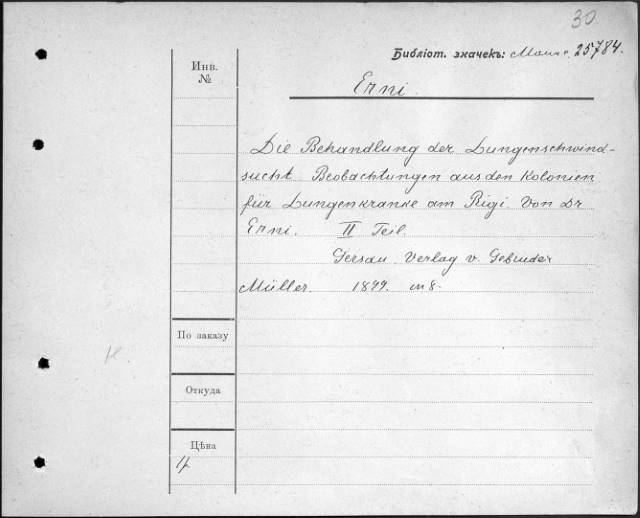 30
Библіот. значекъ: 25784.
Инв.
№
Erni.
Die Behandlung der Lungenschwind-
sucht. Beobachtungen aus den Kolonien
für Lungenkranke am Rigi. Von Dr
Erni. II Teil.
Gersau. Verlag v. Gebrüder
Müller. 1899. in 8.
По заказу
Откуда
Цѣна